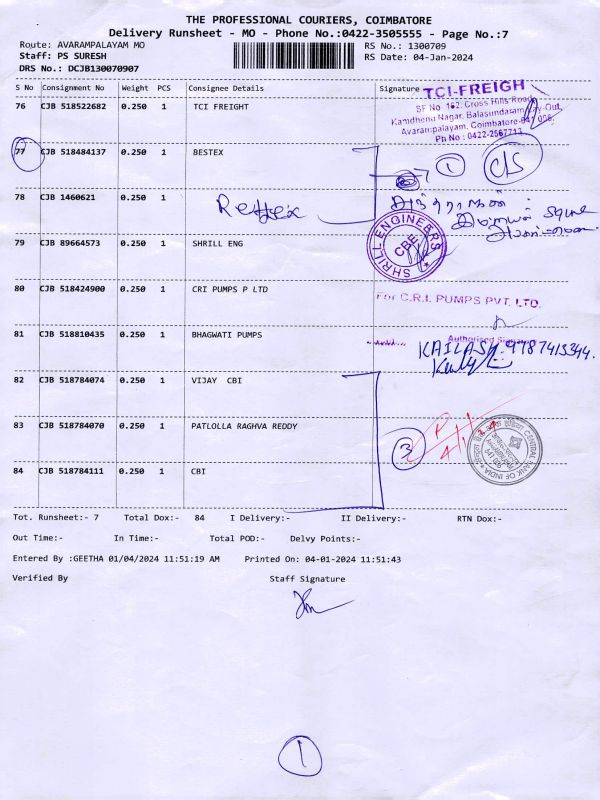 THE PROFESSIONAL COURIERS, COIMBATORE
Delivery Runsheet - MO - Phone No.:0422-3505555 - Page No.:7
Route: AVARAMPALAYAM MO
RS No.: 1300709
Staff: PS SURESH
RS Date: 04-Jan-2024
DRS No.: DCJB130070907
S No Consignment No Weight PCS Consignee Details Signature
76 CJB 518522682 0.250 1 TCI FREIGHT
TCI-FREIGH
SF No. 162, Cross Hills Road
Kamdhenu Nagar, Balasundaram Lay-Out,
Avarampalayam, Coimbatore-641 006.
Ph No : 0422-2567713
77 CJB 518484137 0.250 1 BESTEX
1
C/S
78 CJB 1460621 0.250 1
79 CJB 89664573 0.250 1 SHRILL ENG
SHRILL ENGINEERS
CBE
80 CJB 518424900 0.250 1 CRI PUMPS P LTD
For C.R.I. PUMPS PVT. LTD.
Authorised
81 CJB 518810435 0.250 1 BHAGWATI PUMPS
KAILASH. 9787413344.
82 CJB 518784074 0.250 1 VIJAY CBI
83 CJB 518784070 0.250 1 PATLOLLA RAGHVA REDDY
3
CENTRAL BANK OF INDIA
84 CJB 518784111 0.250 1 CBI
Tot. Runsheet:- 7 Total Dox:- 84 I Delivery:- II Delivery:- RTN Dox:-
Out Time:- In Time:- Total POD:- Delvy Points:-
Entered By :GEETHA 01/04/2024 11:51:19 AM Printed On: 04-01-2024 11:51:43
Verified By Staff Signature
1